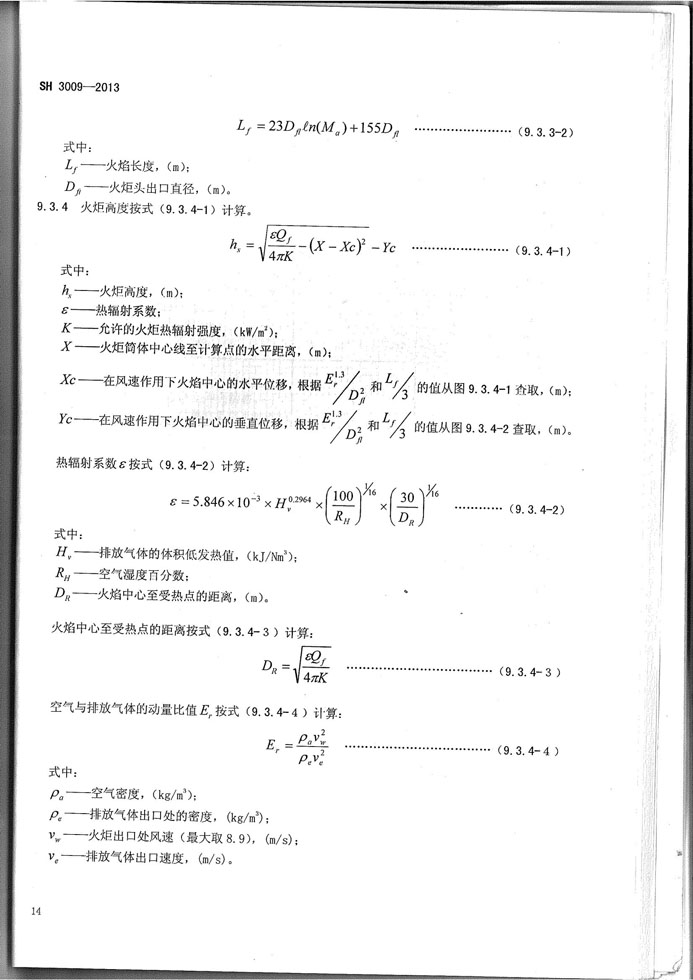 SH 3009—2013
L_f = 23D_fl ℓn(M_a) + 155D_fl ························ (9.3.3-2)
式中:
L_f ——火焰长度,(m);
D_fl ——火炬头出口直径,(m)。
9.3.4 火炬高度按式(9.3.4-1)计算。
h_s = √(εQ_f / 4πK − (X − Xc)²) − Yc ························ (9.3.4-1)
式中:
h_s ——火炬高度,(m);
ε ——热辐射系数;
K ——允许的火炬热辐射强度,(kW/m²);
X ——火炬筒体中心线至计算点的水平距离,(m);
Xc ——在风速作用下火焰中心的水平位移,根据 E_r^1.3 / D_fl^2 和 L_f / 3 的值从图 9.3.4-1 查取,(m);
Yc ——在风速作用下火焰中心的垂直位移,根据 E_r^1.3 / D_fl^2 和 L_f / 3 的值从图 9.3.4-2 查取,(m)。
热辐射系数 ε 按式(9.3.4-2)计算:
ε = 5.846×10^-3 × H_v^0.2964 × (100 / R_H)^1/16 × (30 / D_R)^1/16 ············ (9.3.4-2)
式中:
H_v ——排放气体的体积低发热值,(kJ/Nm³);
R_H ——空气湿度百分数;
D_R ——火焰中心至受热点的距离,(m)。
火焰中心至受热点的距离按式(9.3.4-3)计算:
D_R = √(εQ_f / 4πK) ···································· (9.3.4-3)
空气与排放气体的动量比值 E_r 按式(9.3.4-4)计算:
E_r = ρ_a v_w^2 / ρ_e v_e^2 ···································· (9.3.4-4)
式中:
ρ_a ——空气密度,(kg/m³);
ρ_e ——排放气体出口处的密度,(kg/m³);
v_w ——火炬出口处风速(最大取 8.9),(m/s);
v_e ——排放气体出口速度,(m/s)。
14